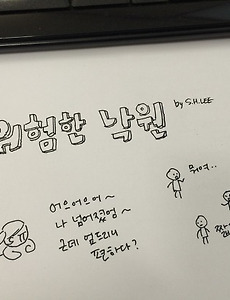 위험한 낙원 by S.H.LEE
뭐여..
어으어으어~
나 넘어졌엉~
근데 엎드리니
편하다?